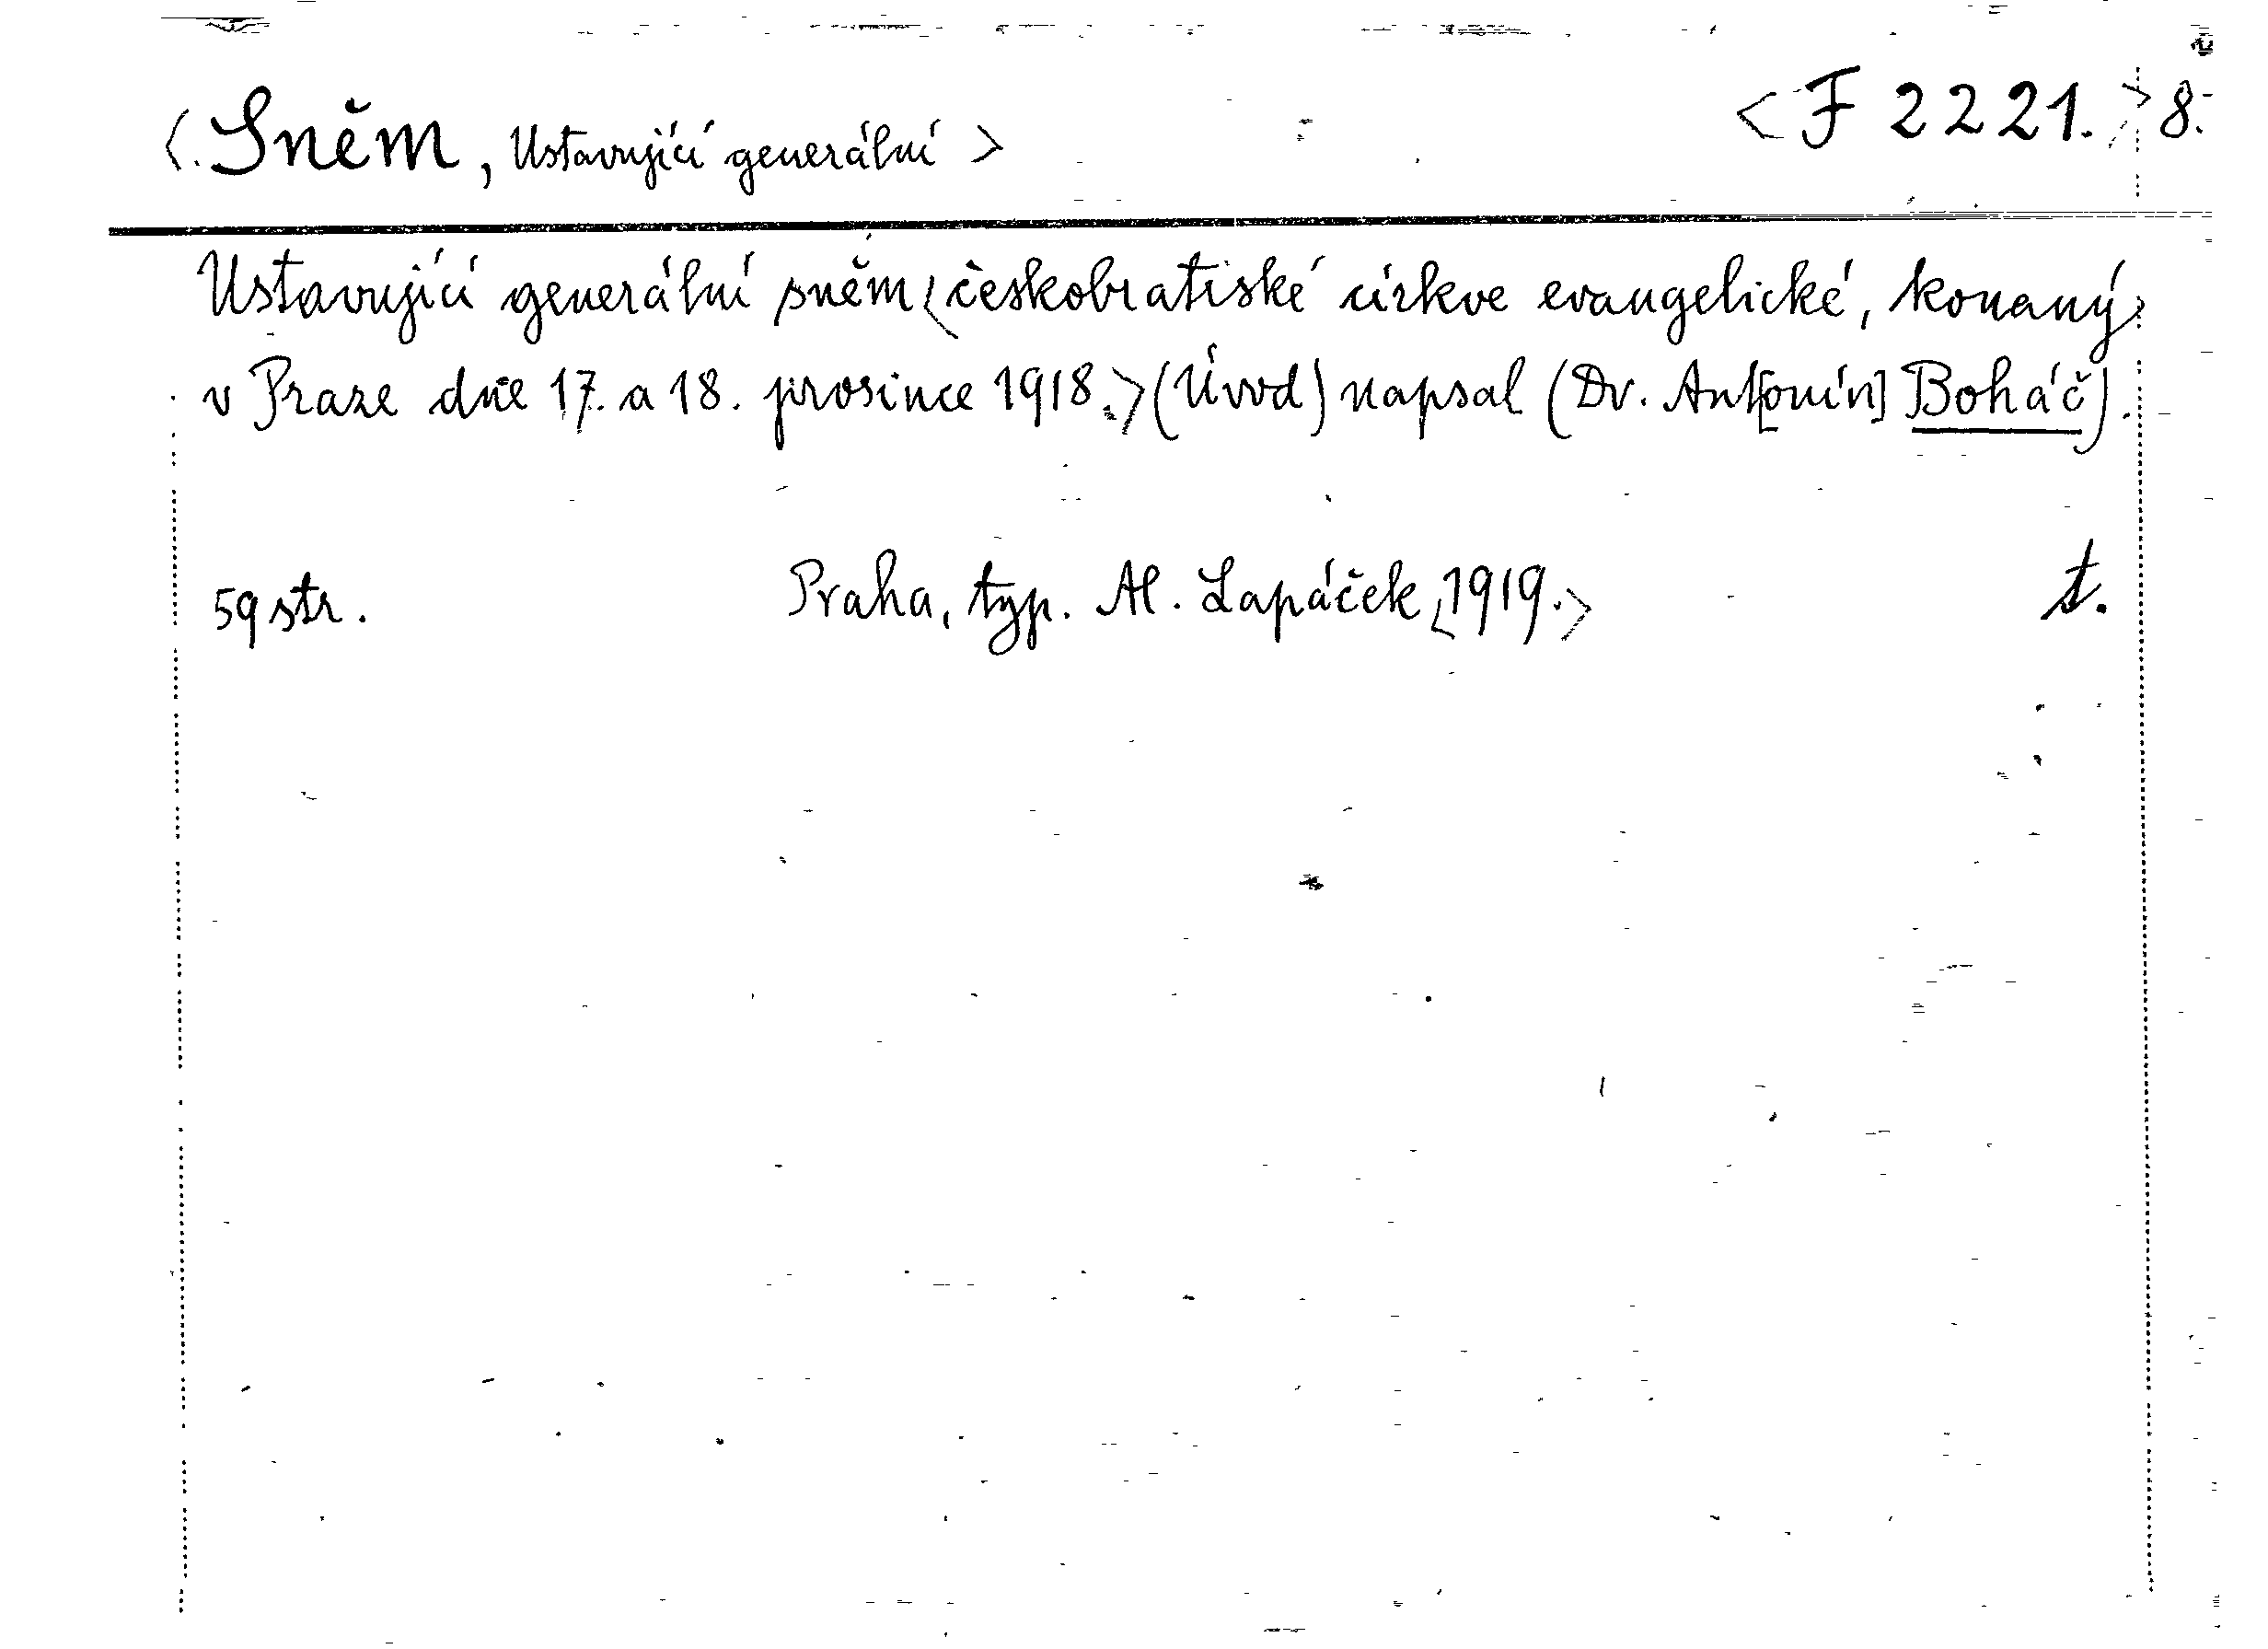 <Sněm, Ustavující generální> <F 2221.> 8.
Ustavující generální sněm <českobratrské církve evangelické, konaný
v Praze dne 17. a 18. prosince 1918.> (Úvod) napsal (Dr. Ant[onín] Boháč).
59 str. Praha, typ. Al. Lapáček <1919.> t.